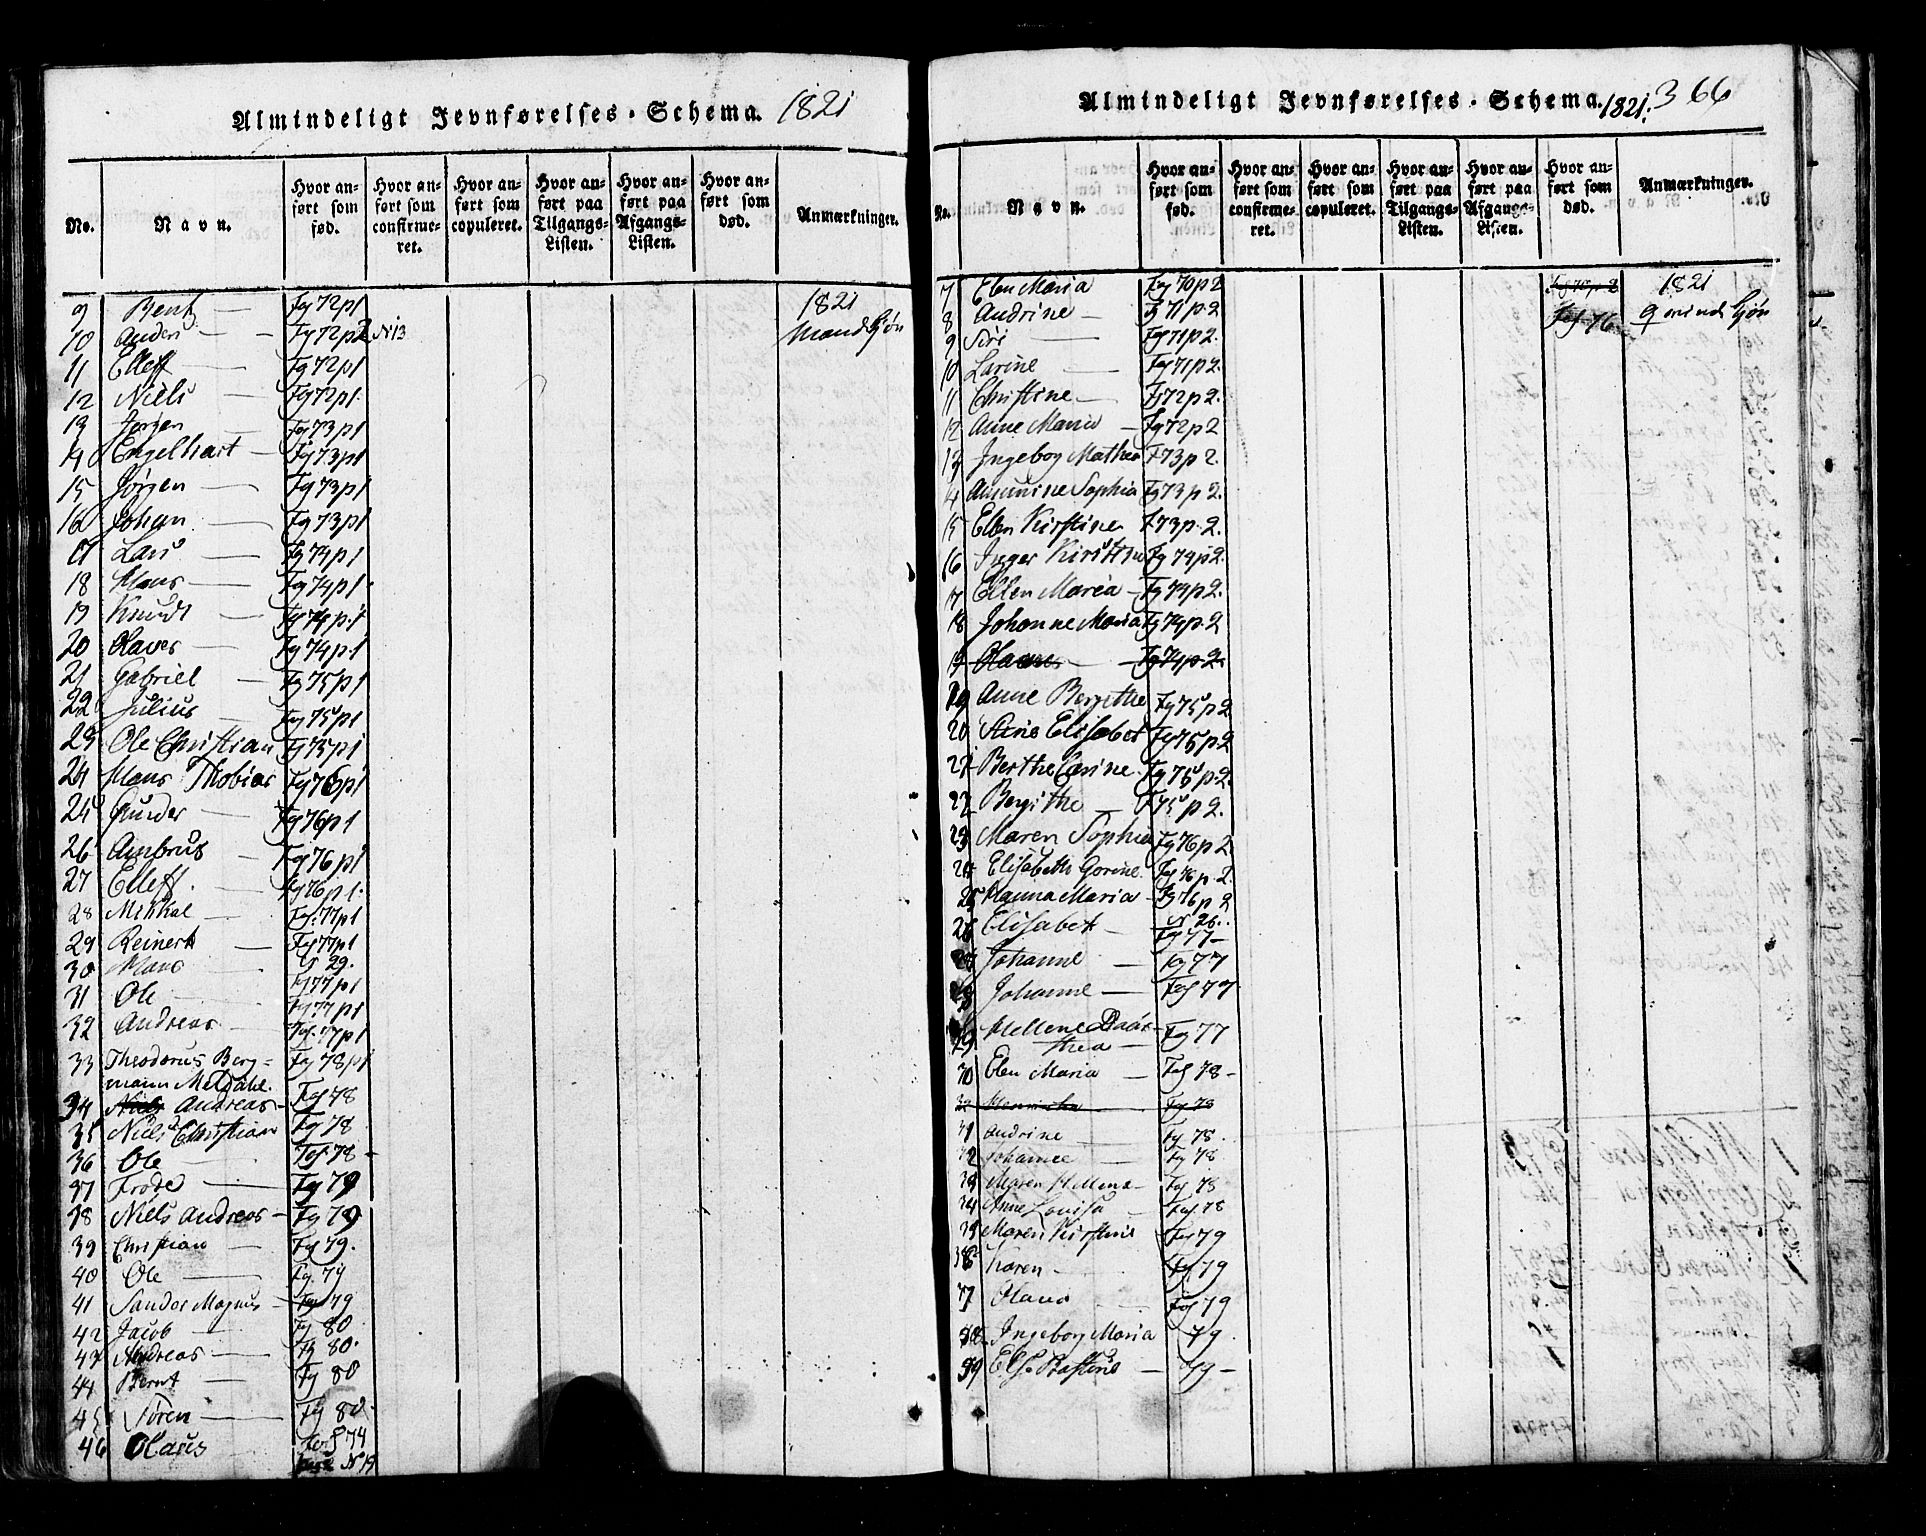 Almindeligt Jevnførelses-Schema. 1821
No. Navn. Hvor anført som fød. Hvor anført som confirmeret. Hvor anført som copuleret. Hvor anført paa Tilgangs-Listen. Hvor anført paa Afgangs-Listen. Hvor anført som død. Anmærkninger.
9 Bent — Fg 72 p 1 1821
10 Anders — Fg 72 p 2 N 13 Mandkjøn
11 Elleff — Fg 72 p 1
12 Niels — Fg 72 p 1
13 Jørgen Fg 73 p 1
14 Engelhart — Fg 73 p 1
15 Jörgen — Fg 73 p 1
16 Johan — Fg 73 p 1
17 Lars — Fg 74 p 1
18 Hans — Fg 74 p 1
19 Knudt — Fg 74 p. 1
20 Olaves — Fg 74 p. 1
21 Gabriel — Fg 75 p 1
22 Julius — Fg 75 p 1
23 Ole Christian Fg 75 p 1
24 Hans Thobias Fg 76 p 1
25 Gunder — Fg 76 p 1
26 Ambrus — Fg 76 p 1
27 Elleff. — Fg 76 p 1.
28 Mikkal — Fg. 77 p 1
29 Reinert — Fg 77 p 1
N 29.
30 Hans — Fg 77 p 1
31 Ole — Fg 77 p 1
32 Andreas — Fol. 77 p 1
33 Theodorus Berg- Fg 78 p 1
mann Meldahl.
34 Niels Andreas — Fol 78
35 Niels Christian Fg 78
36 Ole — Fol. 78 -
37 Frode — Fg 79
38 Niels Andreas — Fg 79
39 Christian — Fg 79.
40 Ole — Fg. 79
41 Sander Magnus — Fg 79
42 Jacob — Fg 80
43 Andreas — Fg 80.
44 Bernt — Fg 80
45 Søren — Fg 80.
46 Olaus Fol 74
N 19
Almindeligt Jevnførelses-Schema. 1821. 366
No. Navn. Hvor anført som fød. Hvor anført som confirmeret. Hvor anført som copuleret. Hvor anført paa Tilgangs-Listen. Hvor anført paa Afgangs-Listen. Hvor anført som død. Anmærkninger.
7 Elen Maria Fg 70 p 2 1821
8 Andrine — Fg 71 p. 2 Fol. 76 Qvindekjøn
9 Siri — Fg 71 p 2.
10 Larine — Fg 71 p 2.
11 Christine — Fg 72 p 2.
12 Anne Maria — Fg 72 p 2
13 Ingebor Mathea F 73 p 2.
14 Sophia Fg 73 p 2.
15 Ellen Kirstine F 73 p. 2.
16 Inger Kirstine Fg 74 p 2.
17 Ellen Maria — Fg 74 p 2.
18 Johanne Maria Fg 74 p. 2
19 Olaves — Fg 74 p. 2.
19 Anne Bergithe Fg 75 p 2
20 Elisabet Fg 75 p. 2
21 Berthe Carine Fg 75 p. 2.
22 Bergithe — F 75 p 2.
23 Maren Sophia Fg 76 p 2
24 Elisabeth Gorine. Fol 76 p. 2.
25 Hanna Maria — Fg 76 p 2
N 26.
26 Elisabet — Fg 77 —
27 Johanne — Fog 77
28 Johanne — Fol 77
29 Mellene Fg 77
thea —
30 Elen Maria — Fol 78 —
Fg 78
31 Andrine — Fg 78.
32 Johanne — Fg 78
33 Maren Hellena — Fol 78
34 Anne Lovisa — Fol. 78
35 Maren Kirstine Fol 79
36 Karen — Fg. 79
37 Olava Fol 79
38 Ingeborg Maria 79.
39 Else — 79 —